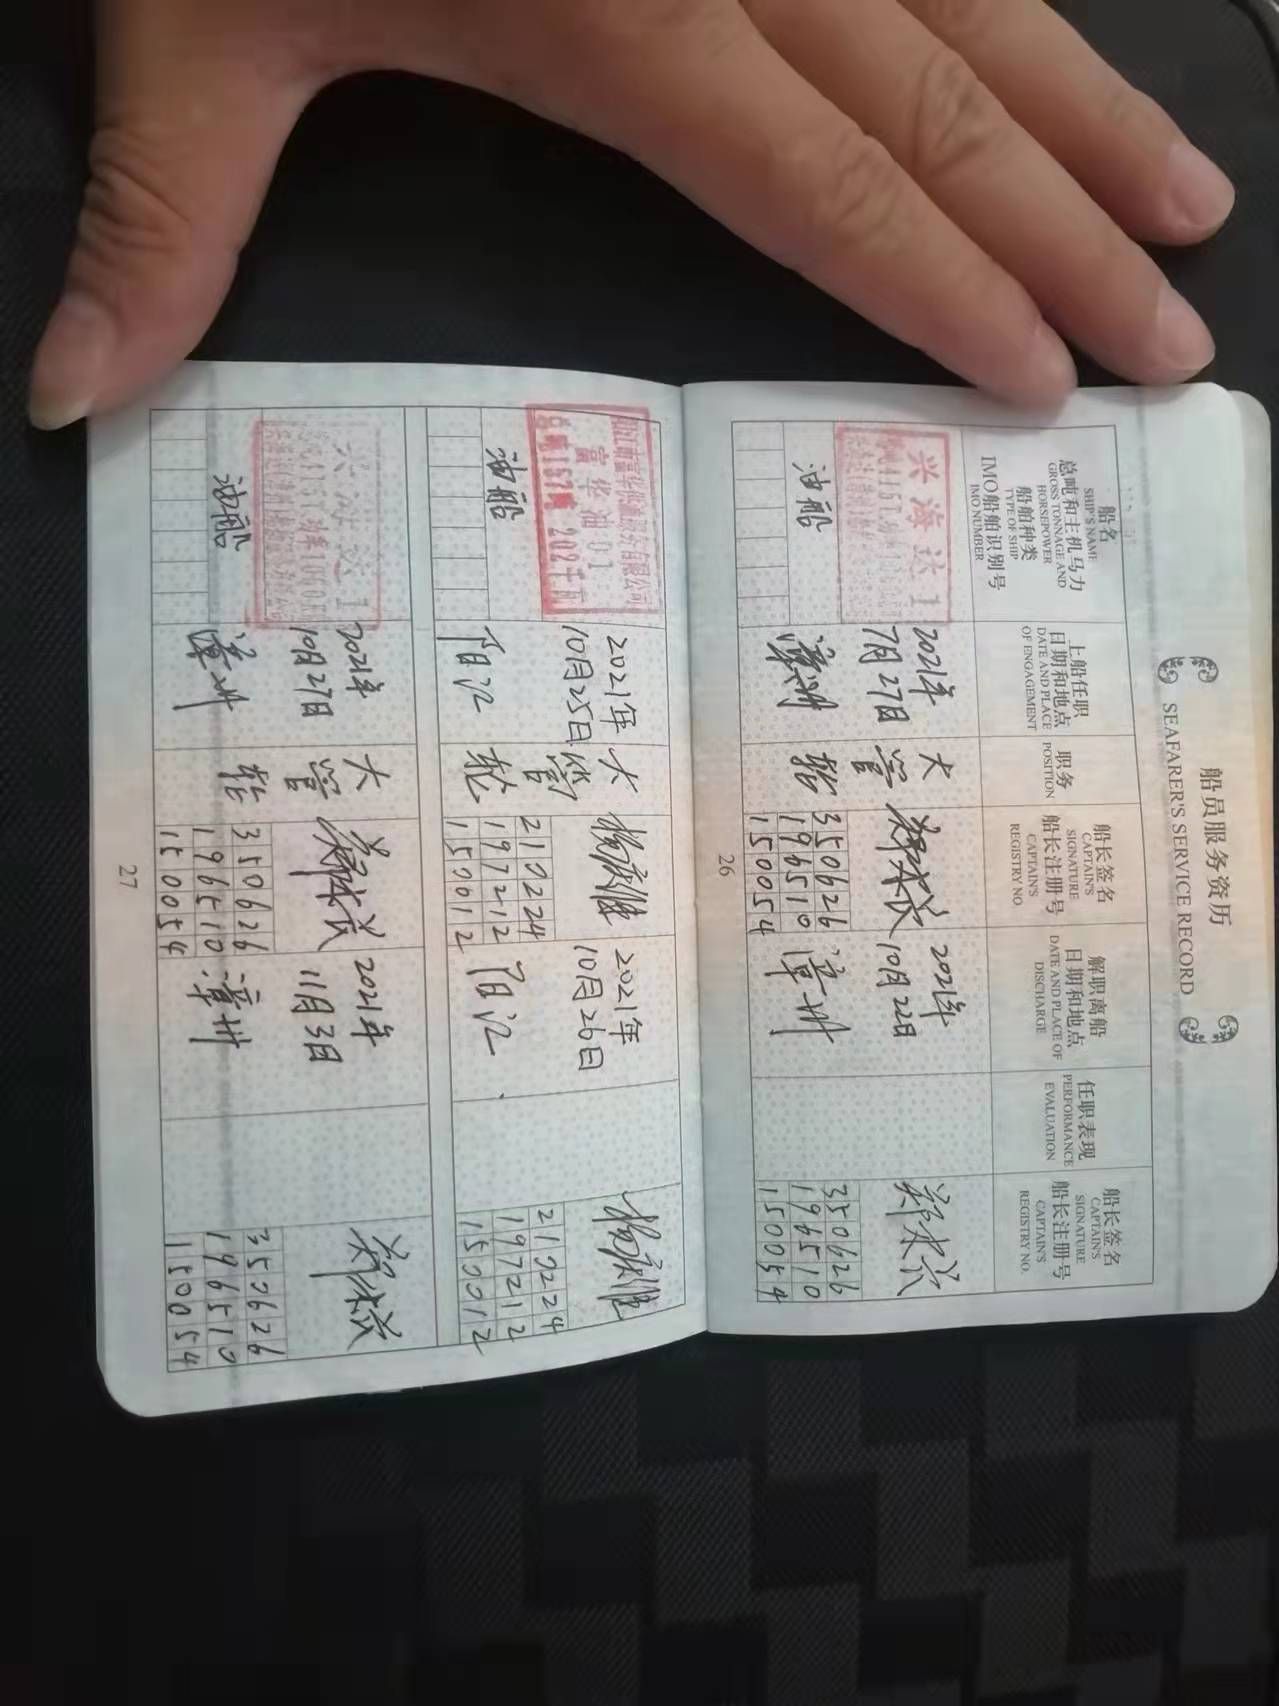 船员服务资历
SEAFARER'S SERVICE RECORD
船名
SHIP'S NAME
总吨和主机马力
GROSS TONNAGE AND
HORSEPOWER
船舶种类
TYPE OF SHIP
IMO船舶识别号
IMO NUMBER
上船任职
日期和地点
DATE AND PLACE
OF ENGAGEMENT
职务
POSITION
船长签名
CAPTAIN'S
SIGNATURE
船长注册号
CAPTAIN'S
REGISTRY NO.
解职离船
日期和地点
DATE AND PLACE OF
DISCHARGE
任职表现
PERFORMANCE
EVALUATION
船长签名
CAPTAIN'S
SIGNATURE
船长注册号
CAPTAIN'S
REGISTRY NO.
兴海达1
油船
2021年
7月27日
漳州
大
管
轮
350626
196510
150054
2021年
10月22日
漳州
350626
196510
150054
26
富华油01
油船
2021年
10月25日
阳江
大
管
轮
210224
197212
150012
2021年
10月26日
阳江
210224
197212
150012
油船
2021年
10月27日
漳州
大
管
轮
350626
196510
150054
2021年
11月3日
漳州
350626
196510
150054
27